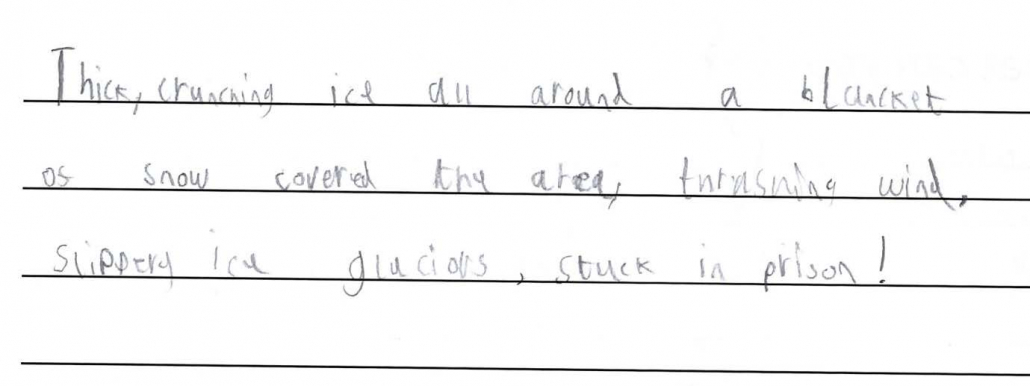 Thick, crunching ice all around a blancket
of snow covered the area, thrashing wind,
slippery ice glaciors, stuck in prison!